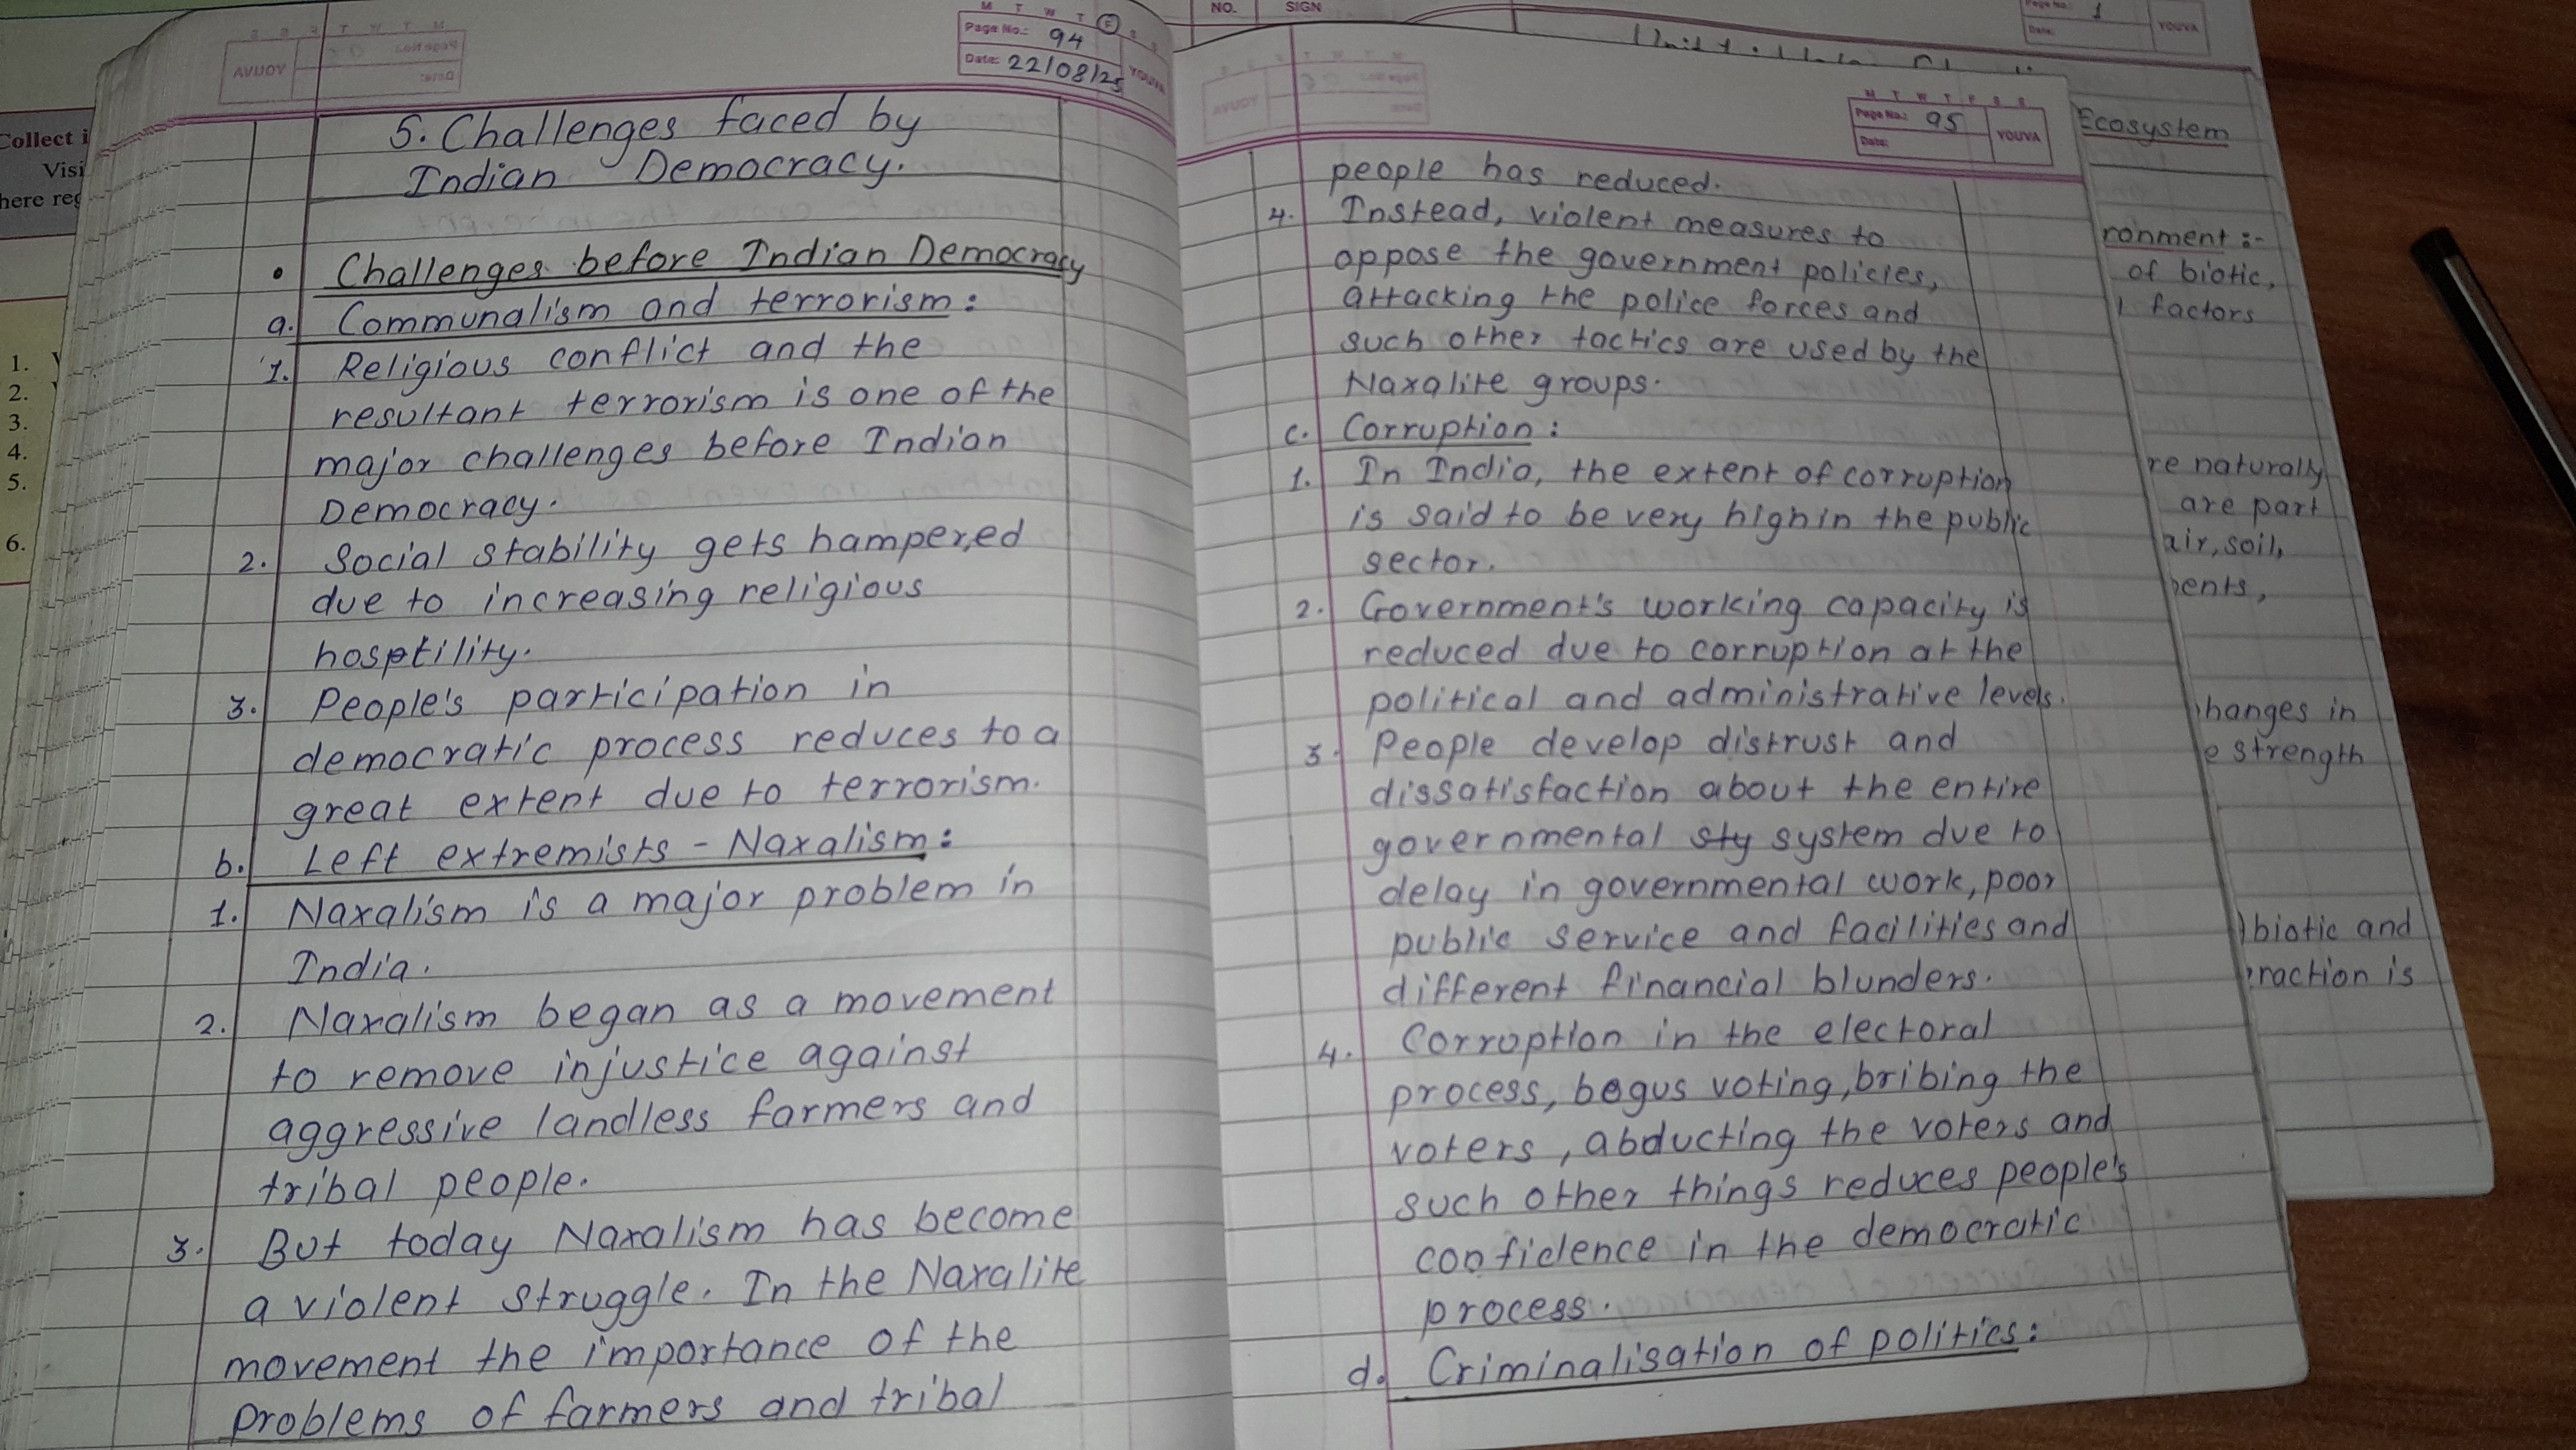 M T W T F S S
Page No.: 94
Date: 22/08/25
YOUVA
5. Challenges faced by
Indian Democracy.
• Challenges before Indian Democracy
a. Communalism and terrorism:
1. Religious conflict and the
resultant terrorism is one of the
major challenges before Indian
Democracy.
2. Social stability gets hampered
due to increasing religious
hosptility.
3. People's participation in
democratic process reduces to a
great extent due to terrorism.
b. Left extremists - Naxalism:
1. Naxalism is a major problem in
India.
2. Naxalism began as a movement
to remove injustice against
aggressive landless farmers and
tribal people.
3. But today Naxalism has become
a violent struggle. In the Naxalite
movement the importance of the
problems of farmers and tribal
M T W T F S S
Page No.: 95
Date:
YOUVA
people has reduced.
4. Instead, violent measures to
oppose the government policies,
attacking the police forces and
such other tactics are used by the
Naxalite groups.
c. Corruption:
1. In India, the extent of corruption
is said to be very high in the public
sector.
2. Government's working capacity is
reduced due to corruption at the
political and administrative levels.
3. People develop distrust and
dissatisfaction about the entire
governmental sty system due to
delay in governmental work, poor
public service and facilities and
different financial blunders.
4. Corruption in the electoral
process, bogus voting, bribing the
voters, abducting the voters and
such other things reduces people's
confidence in the democratic
process.
d. Criminalisation of politics:
NO. SIGN
Page No.: 1
Date:
YOUVA
Ecosystem
ronment :-
of biotic,
factors
re naturally
are part
air, soil,
ents,
hanges in
e strength
biotic and
raction is
Collect i
Visi
here reg
1.
2.
3.
4.
5.
6.